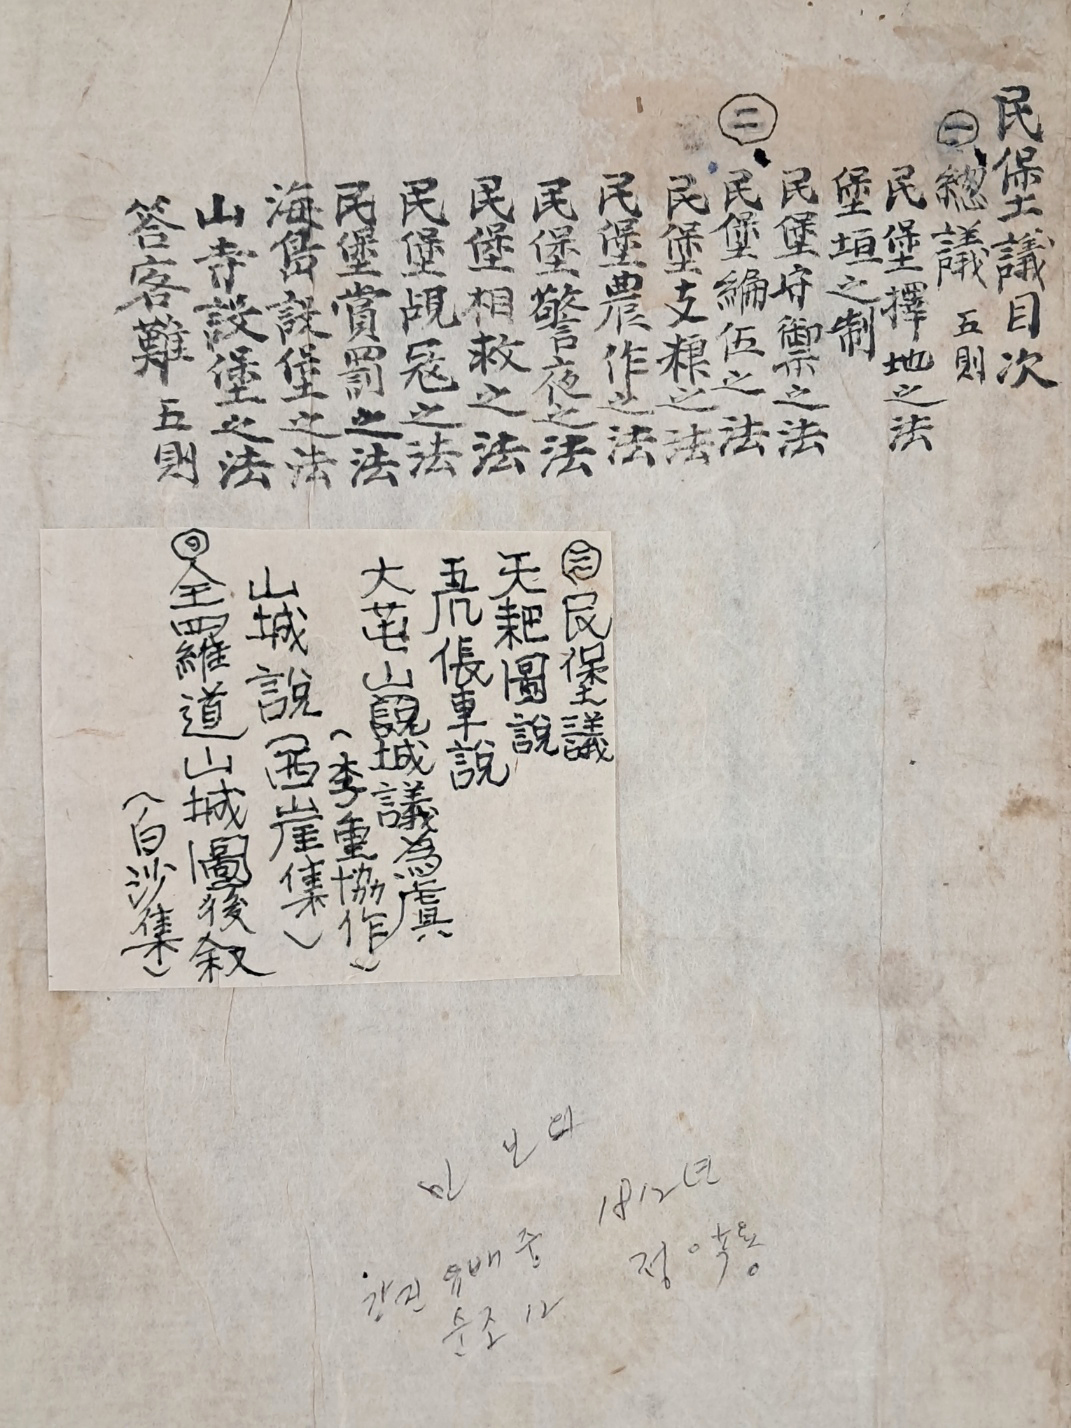 民堡議目次
㊀總議 五則
民堡擇地之法
堡垣之制
民堡守禦之法
㊁
民堡編伍之法
民堡支粮之法
民堡農作之法
民堡警夜之法
民堡相救之法
民堡覘寇之法
民堡賞罰之法
海島設堡之法
山寺設堡之法
答客難 五則
㊂民堡議
天耙圖說
五爪倀車說
大芚山城議為虞說
(李重協作)
山城說(西崖集)
㊃全羅道山城圖後叙
(白沙集)
민보의
1812년
강진 유배중
정약용
순조 12